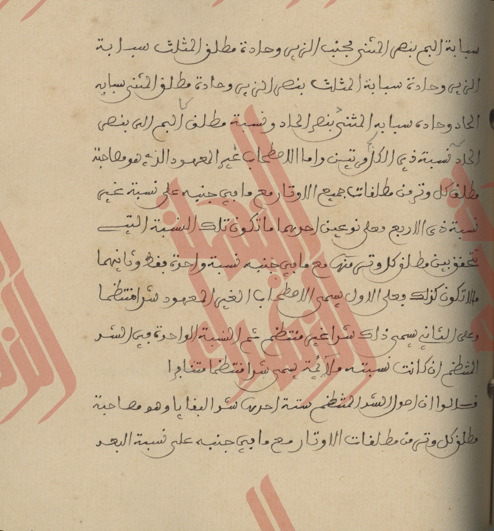 سبابة البم بنصر المثنى مجنب الزير وحادة مطلق المثلث سبابة
الزير وحادة سبابة المثلث بنصر الزير وحادة مطلق المثنى سبابه
الحاد وحاده سبابه المثنى بنصر الحاد ونسبة مطلق البم الى بنصر
الحاد كنسبة ذي الكل مرتين واما الاصطحاب غير المعهود الذي هو مصاحبة
مطلق كل وتر من مطلقات جميع الاوتار مع ما يلي جنبه على نسبة غير
نسبة ذي الاربع فعلى نوعين احدهما ما تكون تلك النسبة التي
تتحقق بين مطلق كل وتر منها مع ما يلي جنبه نسبة واحدة فقط وثانيهما
ما لا تكون كذلك فعلى الاول سمي الاصطحاب الغير المعهود شدا منتظما
وعلى الثاني سمي ذلك شدا غير منتظم ثم النسبة الواحدة في الشد
المنتظم ان كانت نسبته ملائمة يسمى شدا منتظما
قالوا ان اصول الشد المنتظم ستة احدها شد البقايا وهو مصاحبة
مطلق كل وتر من مطلقات الاوتار مع ما يلي جنبه على نسبة البعد